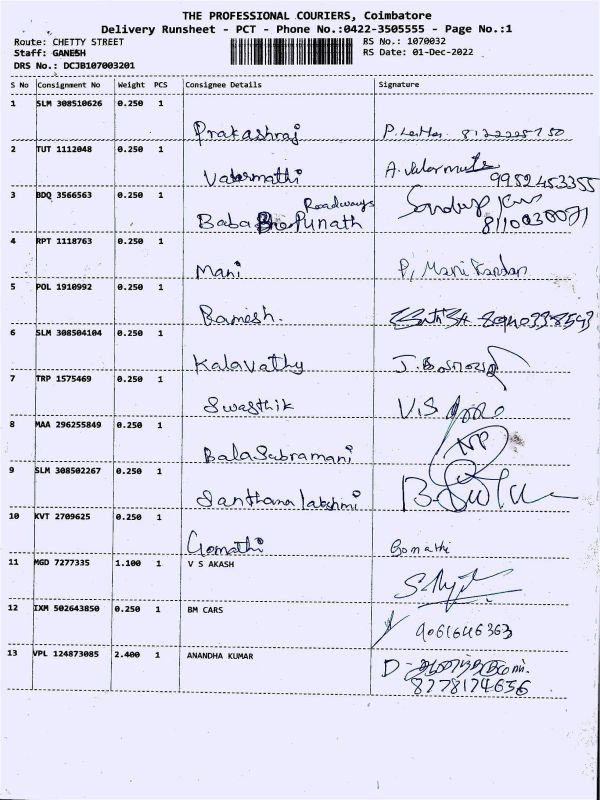 THE PROFESSIONAL COURIERS, Coimbatore
Delivery Runsheet - PCT - Phone No.:0422-3505555 - Page No.:1
Route: CHETTY STREET
RS No.: 1070032
Staff: GANESH
RS Date: 01-Dec-2022
DRS No.: DCJB107003201
S No Consignment No Weight PCS Consignee Details Signature
1 SLM 308510626 0.250 1
Prakashraj P.
2 TUT 1112048 0.250 1
Valarmathi A. 9952453355
3 BDQ 3566563 0.250 1
Roadways
Baba Punath Sandeep 8110030071
4 RPT 1118763 0.250 1
Mani P, Mani Kandan
5 POL 1910992 0.250 1
Ramesh.
6 SLM 308504104 0.250 1
Kalavathy J.
7 TRP 1575469 0.250 1
Swasthik V.S
8 MAA 296255849 0.250 1
BalaSubramani NP
9 SLM 308502267 0.250 1
Santhana lakshmi
10 KVT 2709625 0.250 1
Gomathi Gomathi
11 MGD 7277335 1.100 1 V S AKASH
12 IXM 502643850 0.250 1 BM CARS
9061646363
13 VPL 124873085 2.400 1 ANANDHA KUMAR
8778174656